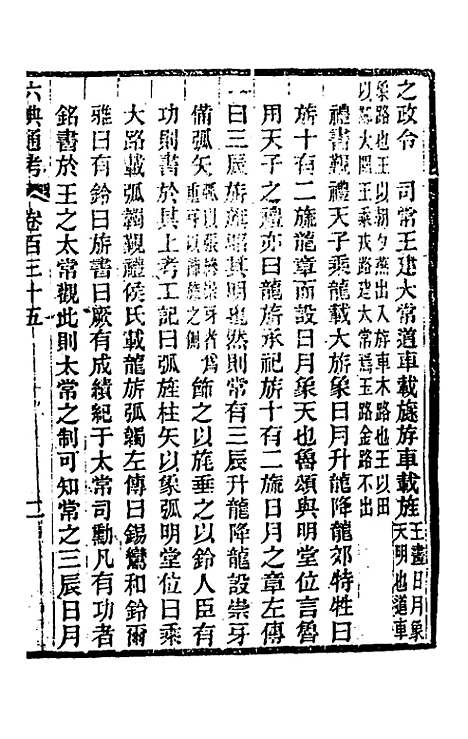 之政令　司常王建大常道車載旞斿車載旌王畫日月象天明也道車
象路也王以朝夕燕出入斿車木路也王以田
以鄙大閱王乘戎路建太常焉玉路金路不出
禮書覲禮天子乘龍載大旂象日月升龍降龍郊特牲曰
旂十有二旒龍章而設日月象天也魯頌與明堂位言魯
用天子之禮亦曰龍旂承祀旂十有二旒日月之章左傳
曰三辰旂旗昭其明也然則常有三辰升龍降龍設崇牙
備弧矢飾之以旄垂之以鈴人臣有
功則書於其上考工記曰弧旌枉矢以象弧明堂位曰乘
大路載弧韣覲禮侯氏載龍旂弧韣左傳曰錫鸞和鈴爾
雅曰有鈴曰旂書曰厥有成績紀于太常司勳凡有功者
銘書於王之太常觀此則太常之制可知常之三辰日月
六典通考　卷百三十五